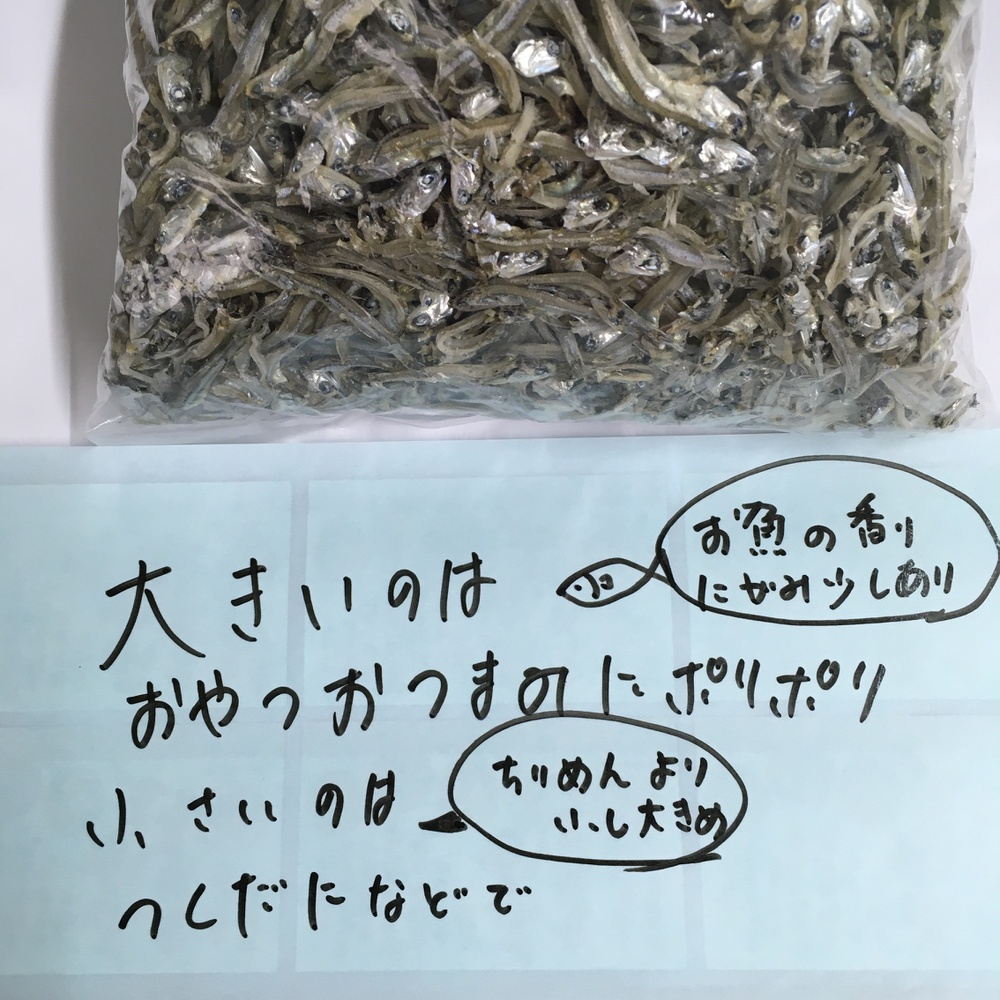 大きいのは
お魚の香り
にがみ少しあり
おやつおつまみにポリポリ
小さいのは
ちりめんより
少し大きめ
つくだになどで